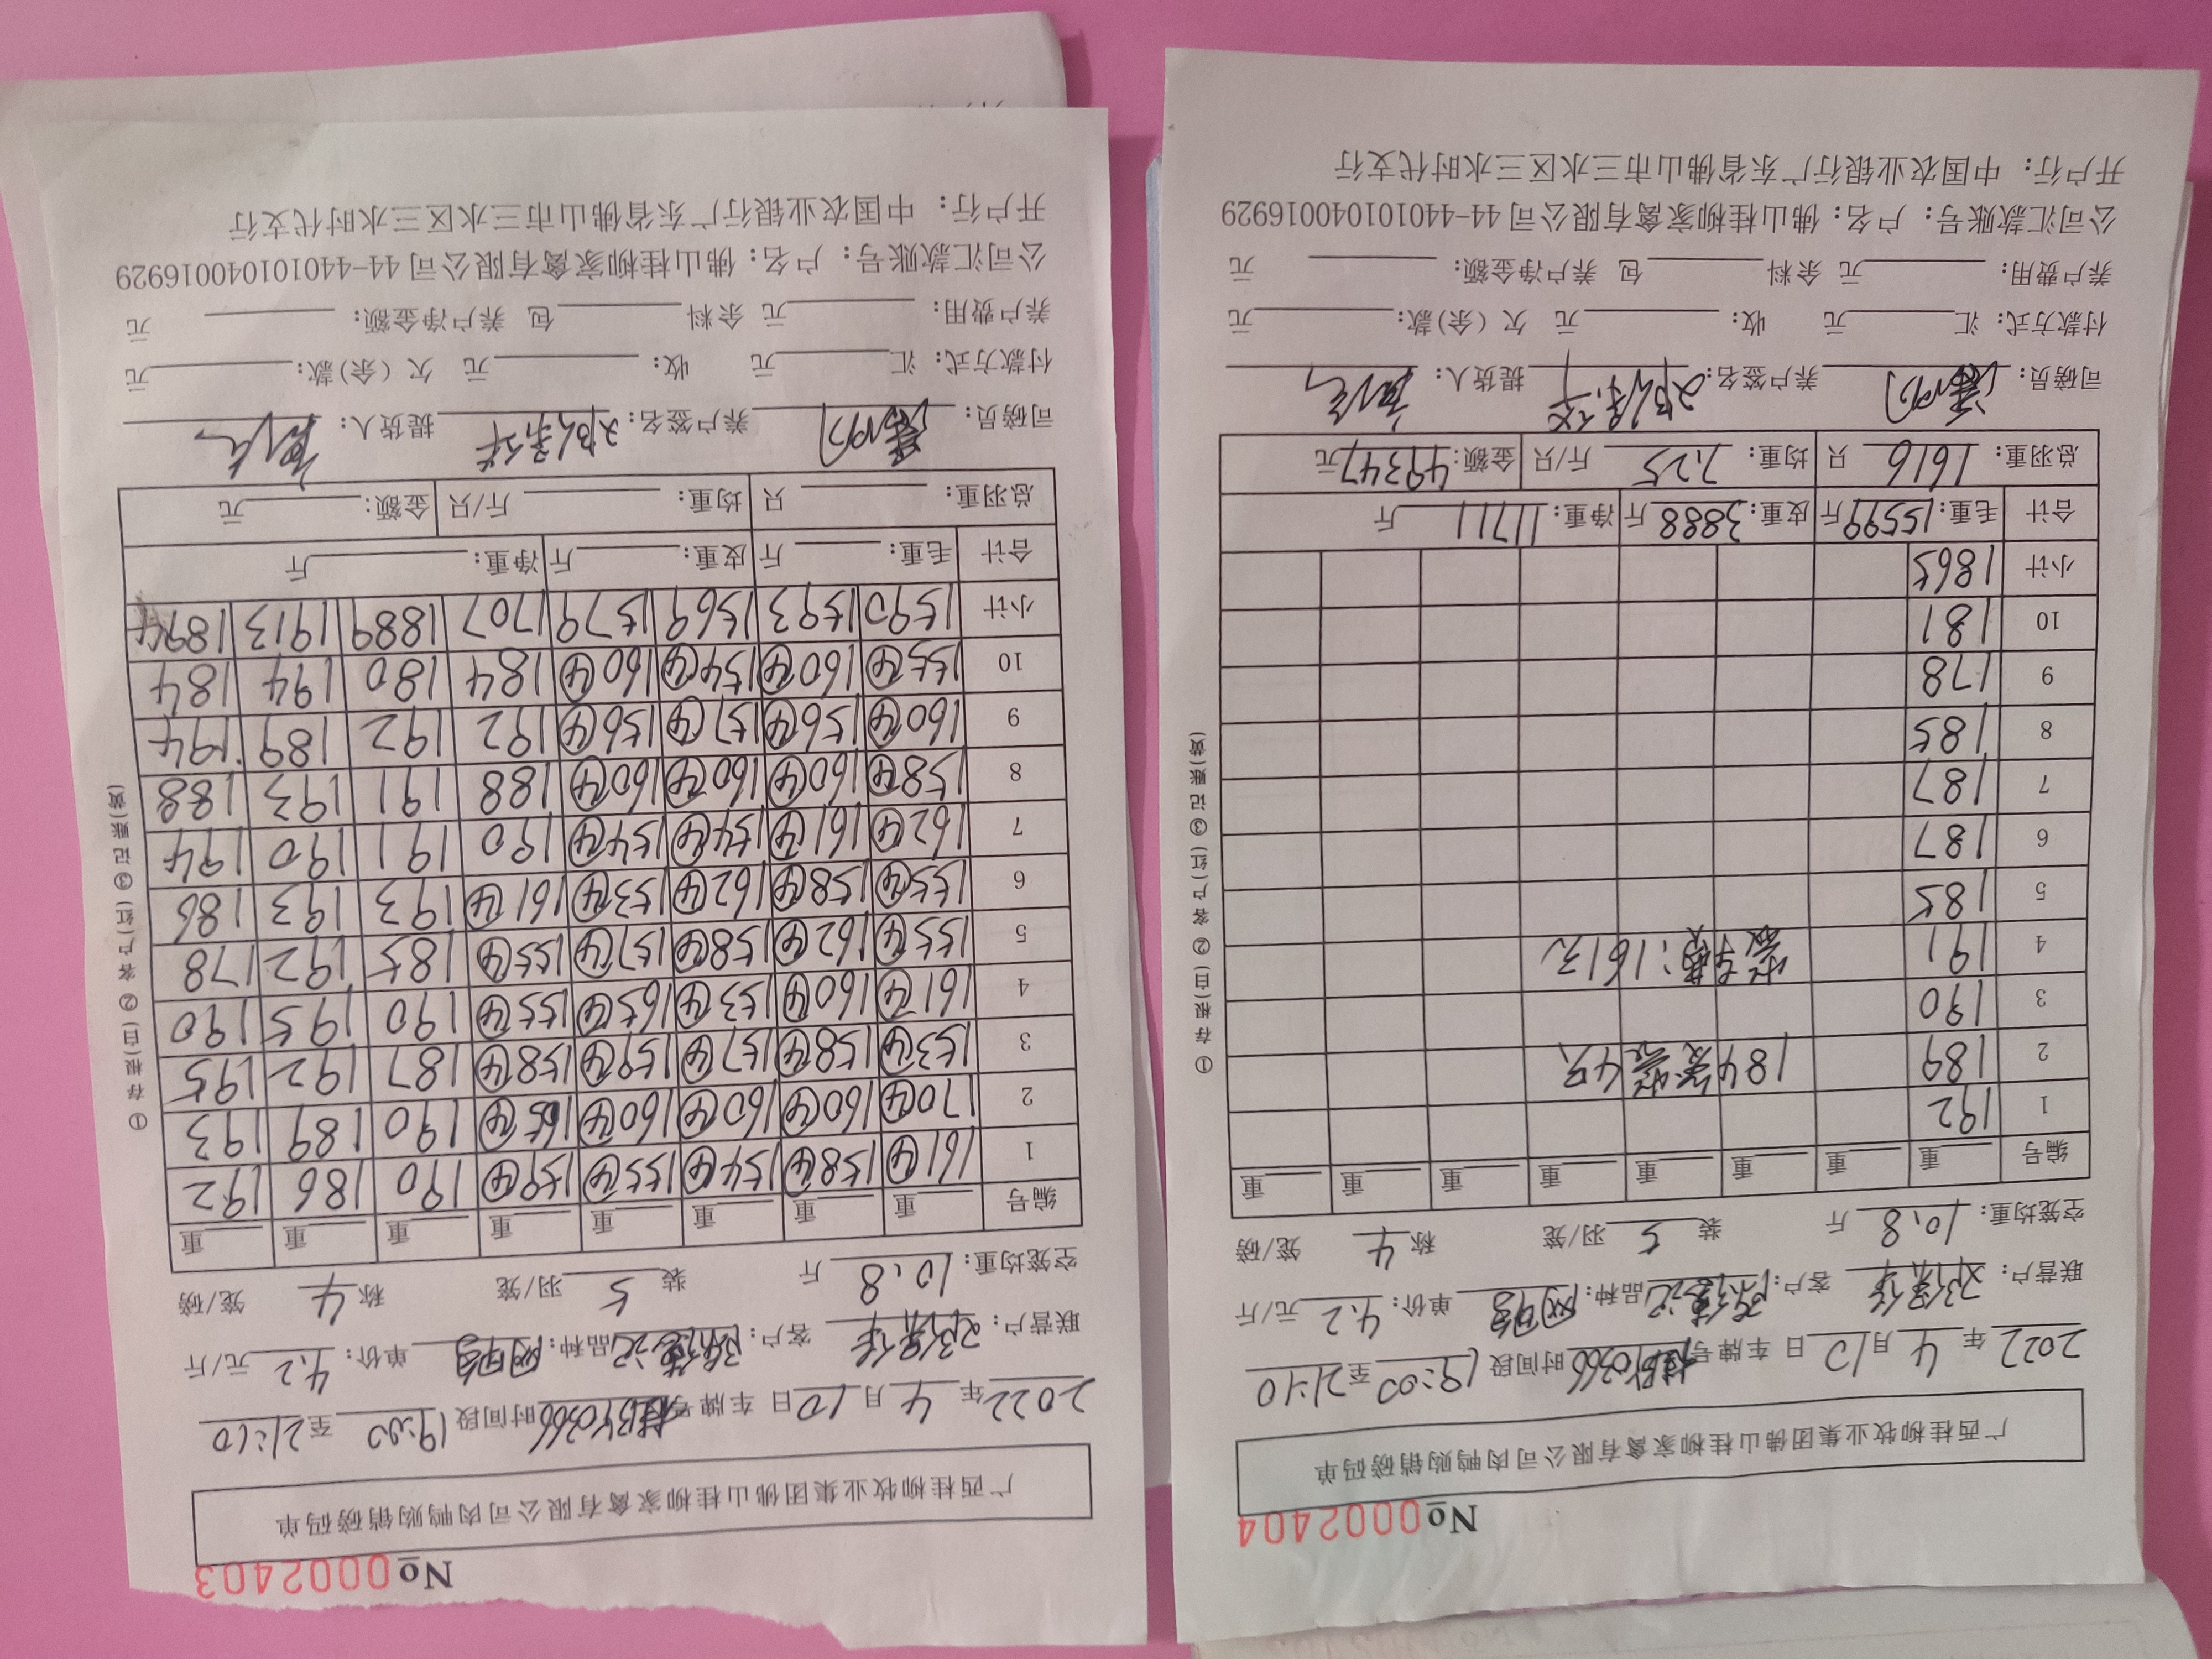 No0002403
广西桂柳牧业集团佛山桂柳家禽有限公司肉鸭购销磅码单
2022年4月10日 车牌号 桂 时间段 19:00至21:10
联营户: 客户: 品种: 单价:4.2元/斤
空笼均重:10.8斤 装5羽/笼 称4笼/磅
编号 重 重 重 重 重 重 重 重
1 161④ 158④ 154④ 155④ 159④ 190 186 192
2 170④ 160④ 160④ 160④ 165④ 190 189 193
3 153④ 158④ 157④ 159④ 158④ 187 192 195
4 161④ 160④ 153④ 165④ 155④ 190 195 190
5 155④ 162④ 158④ 157④ 155④ 185 192 178
6 155④ 158④ 162④ 153④ 161④ 193 193 186
7 162④ 161④ 154④ 154④ 190 191 190 194
8 158④ 160④ 160④ 160④ 188 191 193 188
9 160④ 156④ 157④ 156④ 192 192 189 194
10 155④ 160④ 154④ 160④ 184 180 194 184
小计 1590 1593 1569 1579 1707 1889 1913 1894
合计 毛重: 斤 皮重: 斤 净重: 斤
总羽重: 只 均重: 斤/只 金额: 元
司磅员: 养户签名: 提货人:
付款方式: 汇 元 收: 元 欠(余)款: 元
养户费用: 元 余料 包 养户净金额: 元
公司汇款账号: 户名:佛山桂柳家禽有限公司 44-440101040016929
开户行: 中国农业银行广东省佛山市三水区三水时代支行
①存根(白)②客户(红)③记账(黄)
No0002404
广西桂柳牧业集团佛山桂柳家禽有限公司肉鸭购销磅码单
2022年4月10日 车牌号 桂 时间段 19:00至21:10
联营户: 客户: 品种: 单价:4.2元/斤
空笼均重:10.8斤 装5羽/笼 称4笼/磅
编号 重 重 重 重 重 重 重 重
1 192
2 189 184 4只
3 190
4 191 :161元
5 185
6 187
7 187
8 185
9 178
10 181
小计 1865
合计 毛重:15599斤 皮重:3888斤 净重:11711斤
总羽重:1616只 均重:7.25斤/只 金额:49347元
司磅员: 养户签名: 提货人:
付款方式: 汇 元 收: 元 欠(余)款: 元
养户费用: 元 余料 包 养户净金额: 元
公司汇款账号: 户名:佛山桂柳家禽有限公司 44-440101040016929
开户行: 中国农业银行广东省佛山市三水区三水时代支行
①存根(白)②客户(红)③记账(黄)